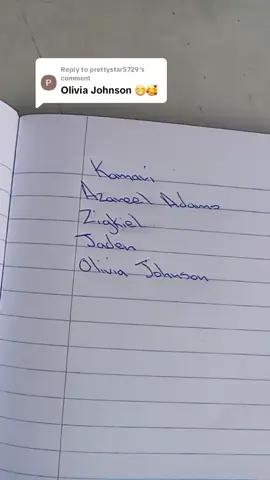 Reply to prettystar5729's
comment
P
Olivia Johnson 😁🥰
Kamari
Azareel Adams
Jaden
Olivia Johnson